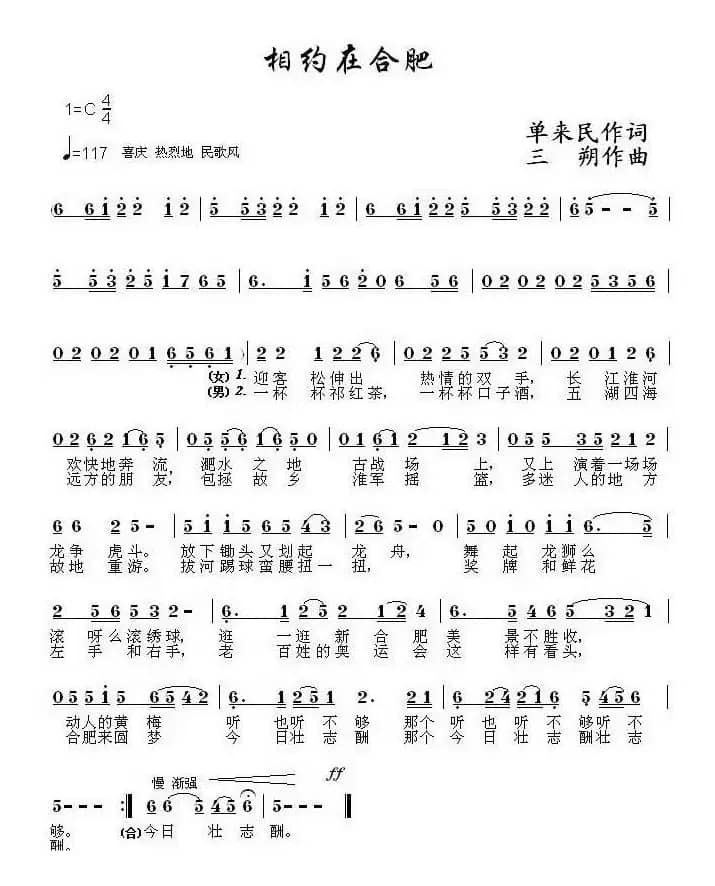 相约在合肥
1=C 4/4
单来民作词
♩=117 喜庆 热烈地 民歌风
三 朔作曲
(6 6 i 2 2 i 2 | 5 5 3 2 2 i 2 | 6 6 i 2 2 5 5 3 2 2 | 6 5 - - 5 |
5 5 3 2 5 i 7 6 5 | 6. i 5 6 2 0 6 5 6 | 0 2 0 2 0 2 5 3 5 6 |
0 2 0 2 0 1 6 5 6 1 ) | 2 2 1 2 2 6 | 0 2 2 5 5 3 2 | 0 2 0 1 2 6 |
(女) 1. 迎客 松伸出 热情的双 手, 长 江淮河
(男) 2. 一杯 杯祁红茶, 一杯杯口子酒, 五 湖四海
0 2 6 2 1 6 5 | 0 5 5 6 1 6 5 0 | 0 1 6 1 2 1 2 3 | 0 5 5 3 5 2 2 1 |
欢快地奔 流, 淝水 之 地 古战 场 上, 又上 演着一场场
远方的朋 友, 包拯 故 乡 淮军 摇 篮, 多迷 人的地 方
6 6 2 5 - | 5 i i 5 6 5 4 3 | 2 6 5 - 0 | 5 0 i 0 i i 6. 5 |
龙争 虎斗。 放下锄头又划起 龙 舟, 舞 起 龙狮么
故地 重游。 拔河踢球蛮腰扭一 扭, 奖 牌 和鲜花
2 5 6 5 3 2 - | 6. 1 2 5 2 | 1 2 4 2 4 | 5 4 6 5 5 |
滚 呀么滚绣球, 逛 一逛 新 合 肥 美 景不胜收,
左 手 和右手, 老 百姓的奥 运 会 这 样有看头,
0 5 5 i 5 6 5 4 2 | 6. 1 2 5 1 | 2. 2 1 2 | 6 2 4 2 1 6 5 6 |
动人的黄 梅 听 也听 不 够 那个 听 也 不 听不 够听不
合肥来圆 梦 今 日壮 志 酬 那个 今 日 壮志 酬壮志
慢 渐强 ff
5 - - - :‖ 6 6 5 4 5 6 | 5 - - - ‖
够。 (合)今日 壮 志 酬。
酬。